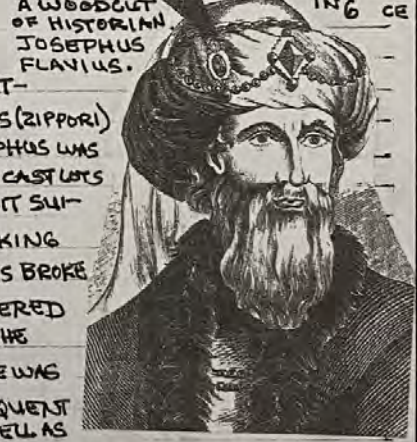 A WOODCUT
OF HISTORIAN
JOSEPHUS
FLAVIUS.
ING CE
T-
S (ZIPPORI)
PHUS WAS
CAST LOTS
IT SUI-
KING
S BROKE
ERED
HE
E WAS
QUENT
ELL AS